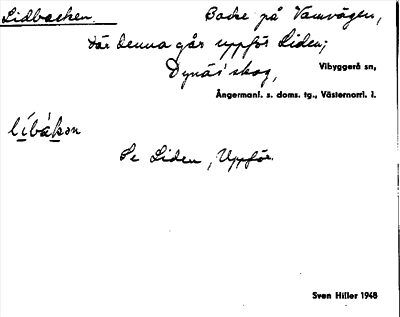 Lidbacken Backe på Vamvägen,
där denna går uppför Liden;
Dynäs' skog, Vibyggerå sn,
Ångermanl. s. doms. tg., Västernorrl. l.
líbákən
Se Liden, Uppför.
Sven Hiller 1948